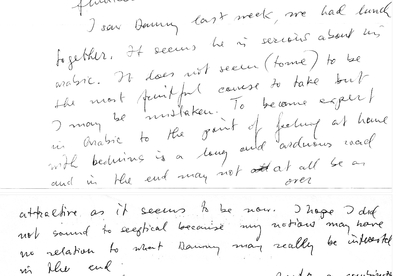 I saw Danny last week, we had lunch
together. It seems he is serious about his
arabic. It does not seem (to me) to be
the most fruitful course to take but
I may be mistaken. To become expert
in Arabic to the point of feeling at home
with beduins is a long and arduous road
and in the end may not at all be as
over
attractive as it seems to be now. I hope I did
not sound to sceptical because my notions may have
no relation to what Danny may really be interested
in the end